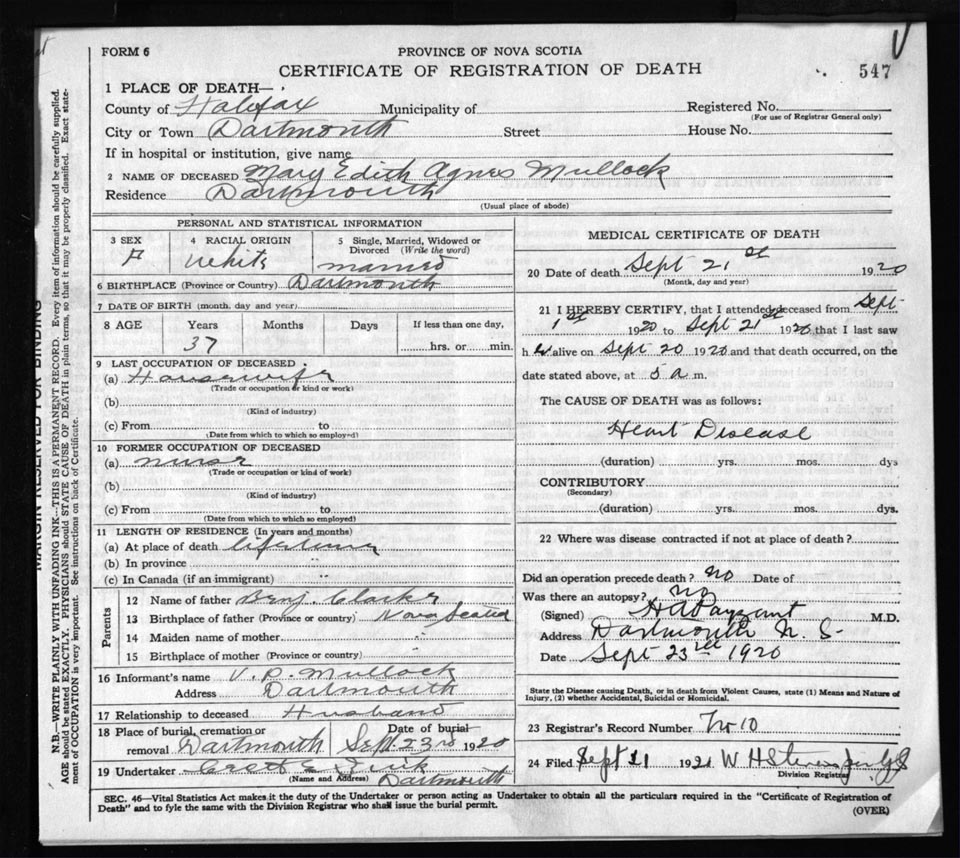 FORM 6
PROVINCE OF NOVA SCOTIA
CERTIFICATE OF REGISTRATION OF DEATH
547
1 PLACE OF DEATH—
County of Halifax Municipality of Registered No.
(For use of Registrar General only)
City or Town Dartmouth Street House No.
If in hospital or institution, give name
2 NAME OF DECEASED Mary Edith Agnes Mullock
Residence Dartmouth
(Usual place of abode)
PERSONAL AND STATISTICAL INFORMATION
3 SEX F
4 RACIAL ORIGIN White
5 Single, Married, Widowed or Divorced (Write the word) married
6 BIRTHPLACE (Province or Country) Dartmouth
7 DATE OF BIRTH (month, day and year)
8 AGE Years Months Days If less than one day,
37 hrs. or min.
9 LAST OCCUPATION OF DECEASED
(a) Housewife
(Trade or occupation or kind or work)
(b)
(Kind of industry)
(c) From to
(Date from which to which so employed)
10 FORMER OCCUPATION OF DECEASED
(a) nurse
(Trade or occupation or kind of work)
(b)
(Kind of industry)
(c) From to
(Date from which to which so employed)
11 LENGTH OF RESIDENCE (In years and months)
(a) At place of death lifetime
(b) In province "
(c) In Canada (if an immigrant) "
Parents
12 Name of father Benj. Clarke
13 Birthplace of father (Province or country) Nova Scotia
14 Maiden name of mother "
15 Birthplace of mother (Province or country) "
16 Informant's name V. P. Mullock
Address Dartmouth
17 Relationship to deceased Husband
18 Place of burial, cremation or removal Dartmouth
Date of burial Sept. 23rd 1920
19 Undertaker Dartmouth
(Name and Address)
MEDICAL CERTIFICATE OF DEATH
20 Date of death Sept 21st 1920
(Month, day and year)
21 I HEREBY CERTIFY, that I attended deceased from Sept
1st 1920 to Sept 21st 1920 that I last saw
h er alive on Sept 20 1920 and that death occurred, on the
date stated above, at 5 a m.
The CAUSE OF DEATH was as follows:
Heart Disease
(duration) yrs. mos. dys
CONTRIBUTORY
(Secondary)
(duration) yrs. mos. dys.
22 Where was disease contracted if not at place of death?
Did an operation precede death? no Date of
Was there an autopsy? no
(Signed) H A Payzant M.D.
Address Dartmouth N. S.
Date Sept 23rd 1920
State the Disease causing Death, or in death from Violent Causes, state (1) Means and Nature of
Injury, (2) whether Accidental, Suicidal or Homicidal.
23 Registrar's Record Number
24 Filed Sept 21 192
Division Registrar
SEC. 46—Vital Statistics Act makes it the duty of the Undertaker or person acting as Undertaker to obtain all the particulars required in the "Certificate of Registration of
Death" and to fyle the same with the Division Registrar who shall issue the burial permit.
(OVER)
MARGIN RESERVED FOR BINDING
N.B.—WRITE PLAINLY WITH UNFADING INK—THIS IS A PERMANENT RECORD. Every item of information should be carefully supplied.
AGE should be stated EXACTLY. PHYSICIANS should STATE CAUSE OF DEATH in plain terms, so that it may be properly classified. Exact state-
ment of OCCUPATION is very important. See instructions on back of Certificate.